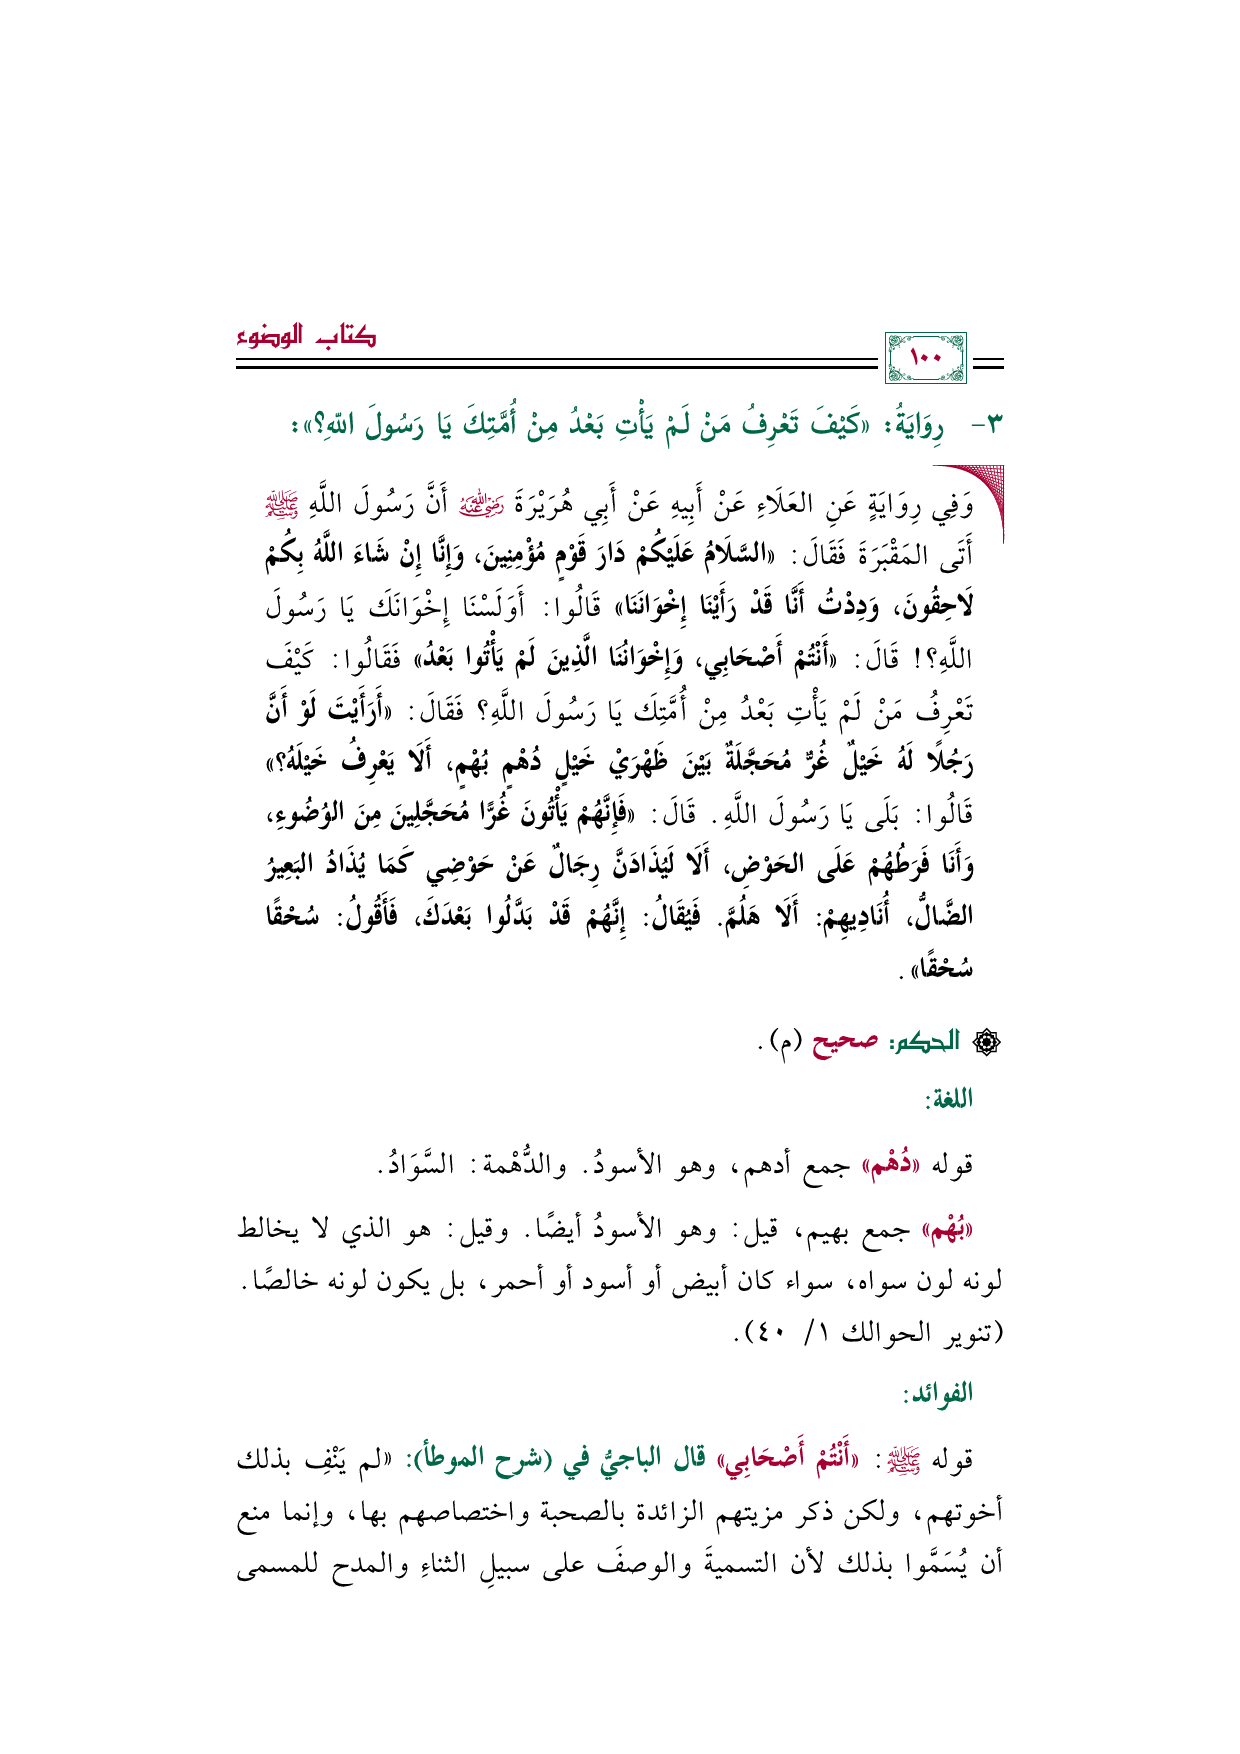 كتاب الوضوء
١٠٠
٣- رِوَايَةُ: «كَيْفَ تَعْرِفُ مَنْ لَمْ يَأْتِ بَعْدُ مِنْ أُمَّتِكَ يَا رَسُولَ اللهِ؟»:
وَفِي رِوَايَةٍ عَنِ العَلَاءِ عَنْ أَبِيهِ عَنْ أَبِي هُرَيْرَةَ رضي الله عنه أَنَّ رَسُولَ اللَّهِ ﷺ
أَتَى المَقْبَرَةَ فَقَالَ: «السَّلَامُ عَلَيْكُمْ دَارَ قَوْمٍ مُؤْمِنِينَ، وَإِنَّا إِنْ شَاءَ اللَّهُ بِكُمْ
لَاحِقُونَ، وَدِدْتُ أَنَّا قَدْ رَأَيْنَا إِخْوَانَنَا» قَالُوا: أَوَلَسْنَا إِخْوَانَكَ يَا رَسُولَ
اللَّهِ؟! قَالَ: «أَنْتُمْ أَصْحَابِي، وَإِخْوَانُنَا الَّذِينَ لَمْ يَأْتُوا بَعْدُ» فَقَالُوا: كَيْفَ
تَعْرِفُ مَنْ لَمْ يَأْتِ بَعْدُ مِنْ أُمَّتِكَ يَا رَسُولَ اللَّهِ؟ فَقَالَ: «أَرَأَيْتَ لَوْ أَنَّ
رَجُلًا لَهُ خَيْلٌ غُرٌّ مُحَجَّلَةٌ بَيْنَ ظَهْرَيْ خَيْلٍ دُهْمٍ بُهْمٍ، أَلَا يَعْرِفُ خَيْلَهُ؟»
قَالُوا: بَلَى يَا رَسُولَ اللَّهِ. قَالَ: «فَإِنَّهُمْ يَأْتُونَ غُرًّا مُحَجَّلِينَ مِنَ الوُضُوءِ،
وَأَنَا فَرَطُهُمْ عَلَى الحَوْضِ، أَلَا لَيُذَادَنَّ رِجَالٌ عَنْ حَوْضِي كَمَا يُذَادُ البَعِيرُ
الضَّالُّ، أُنَادِيهِمْ: أَلَا هَلُمَّ. فَيُقَالُ: إِنَّهُمْ قَدْ بَدَّلُوا بَعْدَكَ، فَأَقُولُ: سُحْقًا
سُحْقًا».
الحكم: صحيح (م).
اللغة:
قوله «دُهْم» جمع أدهم، وهو الأسودُ. والدُّهْمة: السَّوَادُ.
«بُهْم» جمع بهيم، قيل: وهو الأسودُ أيضًا. وقيل: هو الذي لا يخالط
لونه لون سواه، سواء كان أبيض أو أسود أو أحمر، بل يكون لونه خالصًا.
(تنوير الحوالك ١/ ٤٠).
الفوائد:
قوله ﷺ: «أَنْتُمْ أَصْحَابِي» قال الباجيُّ في (شرح الموطأ): «لم يَنْفِ بذلك
أخوتهم، ولكن ذكر مزيتهم الزائدة بالصحبة واختصاصهم بها، وإنما منع
أن يُسَمَّوا بذلك لأن التسميةَ والوصفَ على سبيلِ الثناءِ والمدح للمسمى